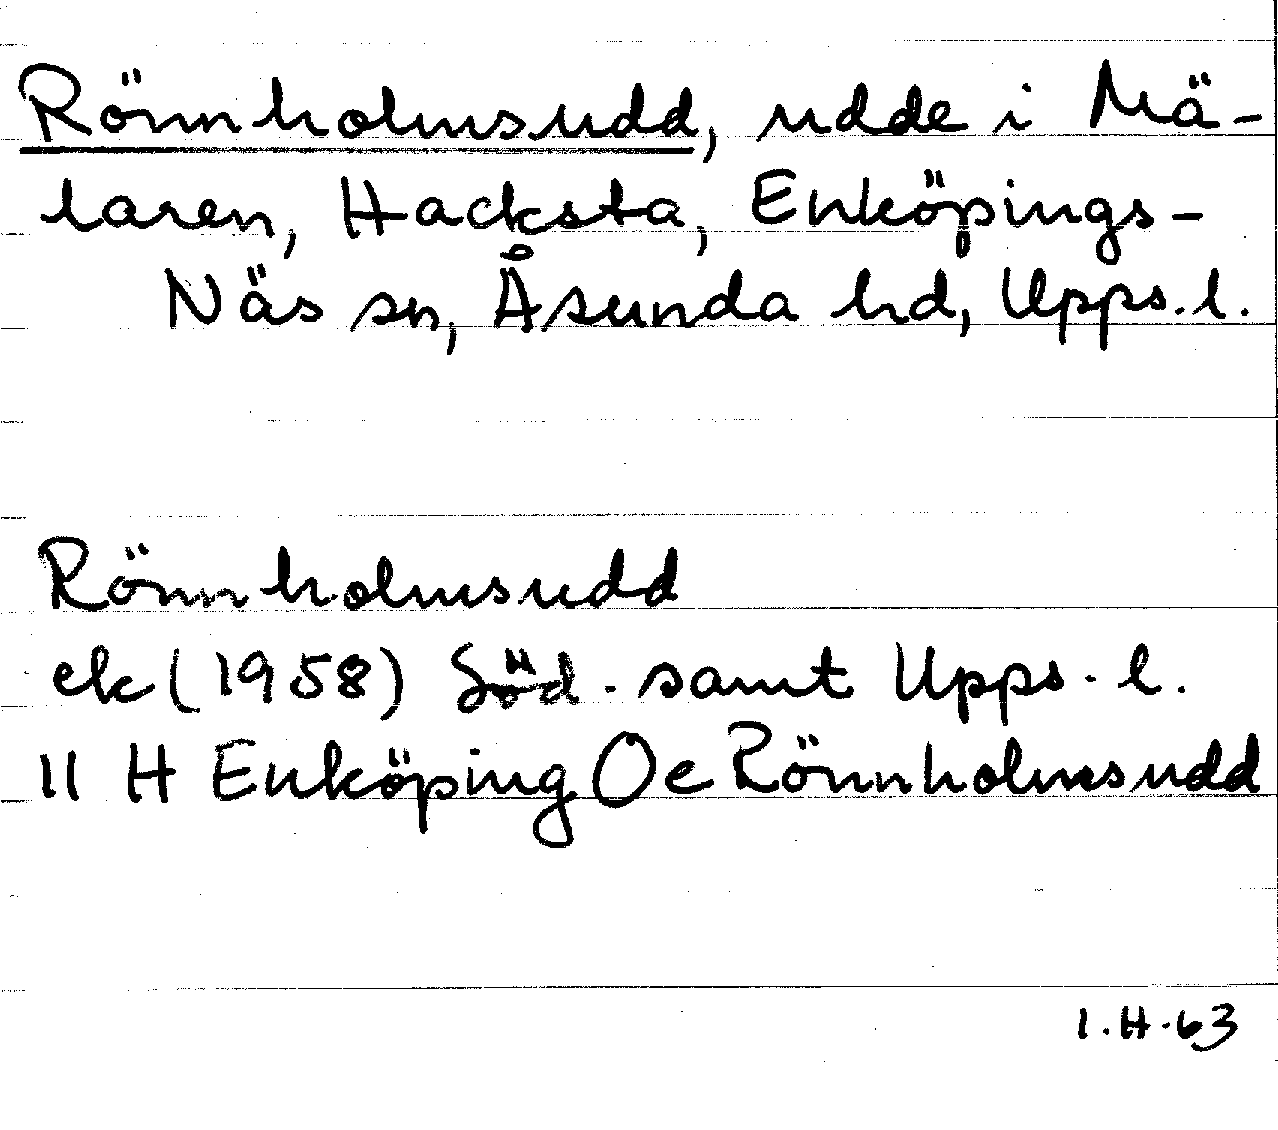 Rönnholmsudd, udde i Mä-
laren, Hacksta, Enköpings-
Näs sn, Åsunda hd, Upps. l.
Rönnholmsudd
ek (1958) Söd. samt Upps. l.
11 H Enköping Oe Rönnholmsudd
I.H.63